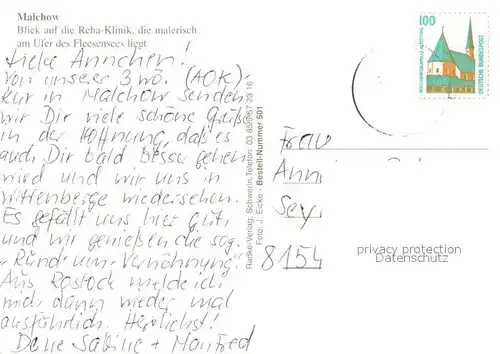 Malchow
Blick auf die Reha-Klinik, die malerisch
am Ufer des Fleesensees liegt.
Liebe Ännchen!
Von unserer 3 wö. (AOK)-
Kur in Malchow senden
wir Dir viele schöne Grüße
in der Hoffnung, daß es
auch Dir bald besser gehen
wird und wir uns in
Wittenberge wiedersehen.
Es gefällt uns hier gut,
und wir genießen die sog.
"Rundum-Verwöhnung".
Aus Rostock melde ich
mich dann wieder mal
ausführlich. Herzlichst!
Deine Sabine + Manfred
Radke-Verlag, Schwerin, Telefon: 03 85/5 57 23 16
Foto: J. Eicke - Bestell-Nummer 501
100
WALLFAHRTSKAPELLE ALTÖTTING
DEUTSCHE BUNDESPOST
Frau
Ann
Sey
8154
privacy protection
Datenschutz